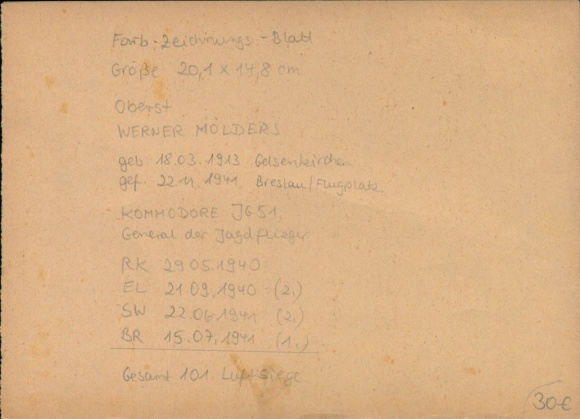 Farb-Zeichnungs-Blatt
Größe 20,1 x 14,8 cm
Oberst
WERNER MÖLDERS
geb. 18.03.1913 Gelsenkirchen
gef. 22.11.1941 Breslau/Flugplatz
KOMMODORE JG 51,
General der Jagdflieger
RK 29.05.1940
EL 21.09.1940 (2.)
SW 22.06.1941 (2.)
BR 15.07.1941 (1.)
Gesamt 101. Luftsiege
30€